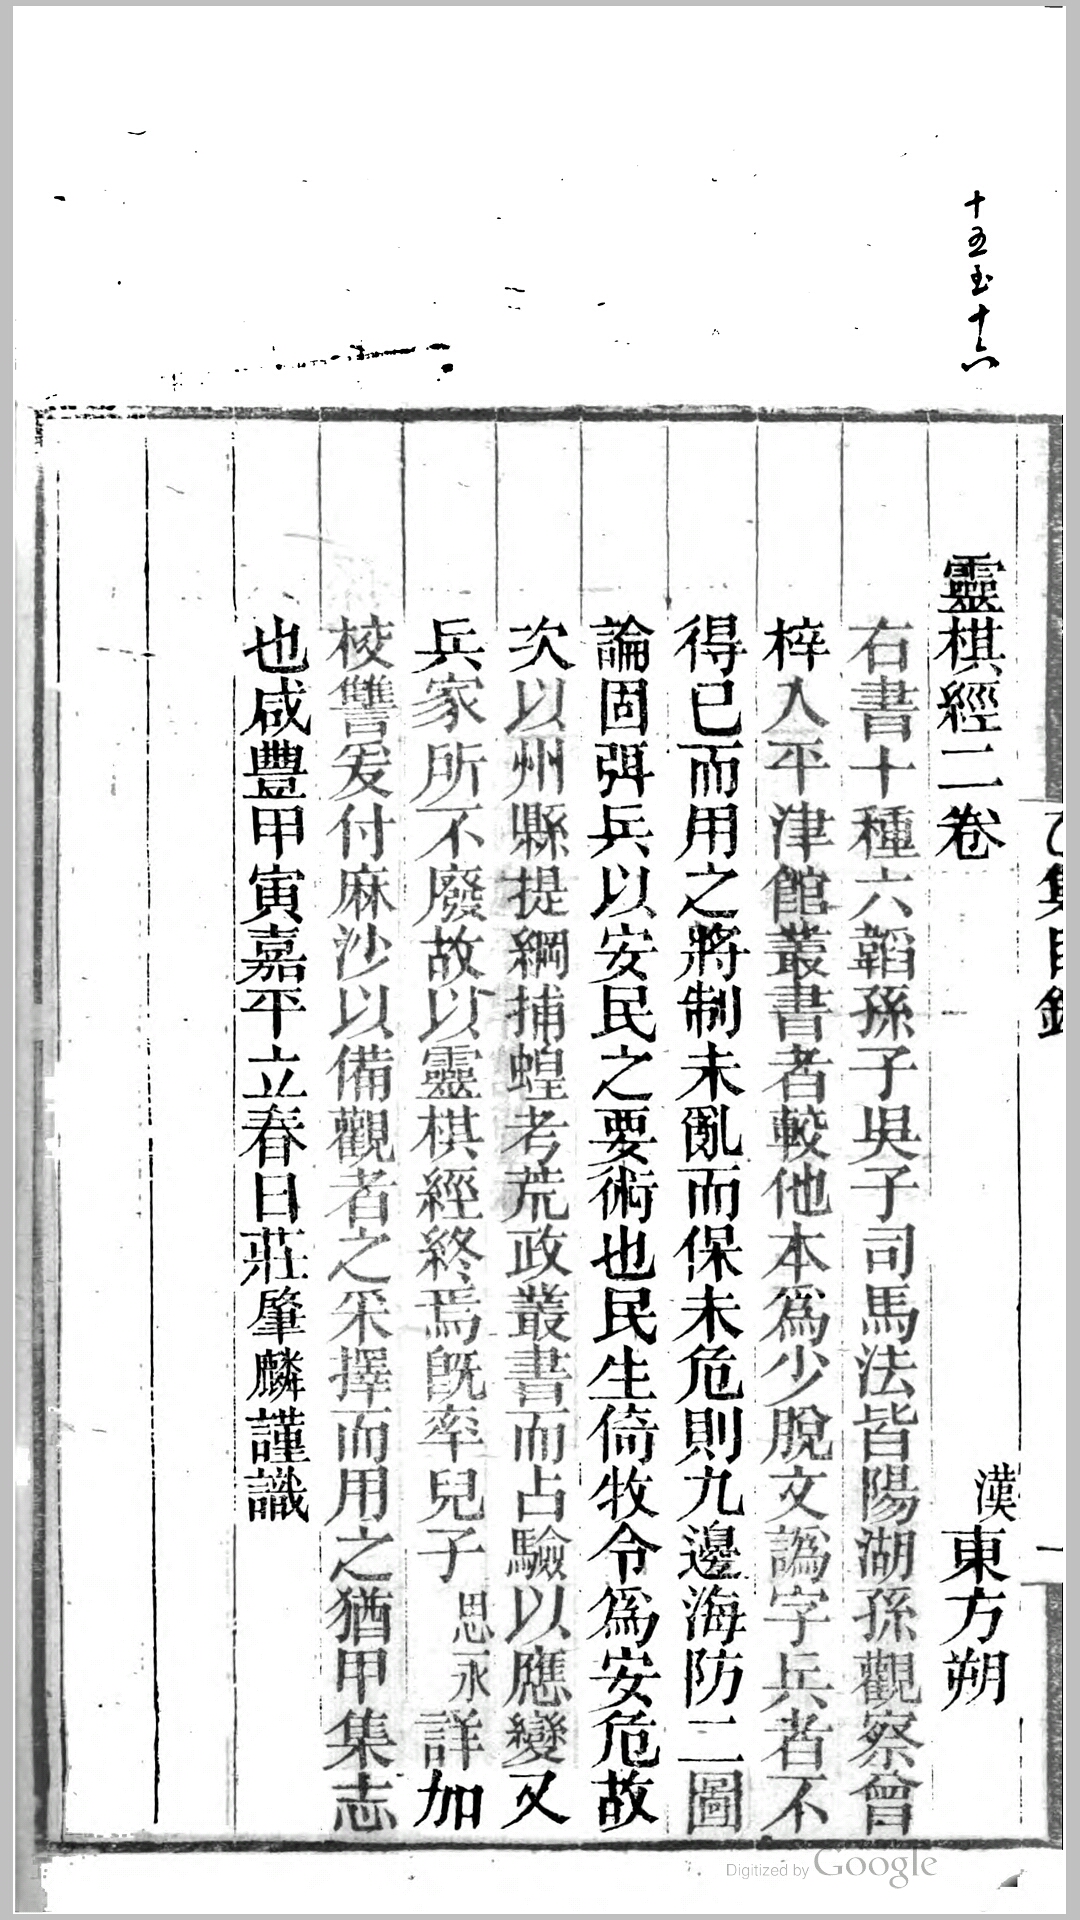 十五至十六
靈棋經二卷 漢東方朔
右書十種六韜孫子吳子司馬法皆陽湖孫觀察曾
梓入平津館叢書者較他本爲少脫文譌字兵者不
得已而用之將制未亂而保未危則九邊海防二圖
論固弭兵以安民之要術也民生倚牧令爲安危故
次以州縣提綱捕蝗考荒政叢書而占驗以應變又
兵家所不廢故以靈棋經終焉旣率兒子思永詳加
校讐爰付麻沙以備觀者之采擇而用之猶甲集志
也咸豐甲寅嘉平立春日莊肇麟謹識
Digitized by Google